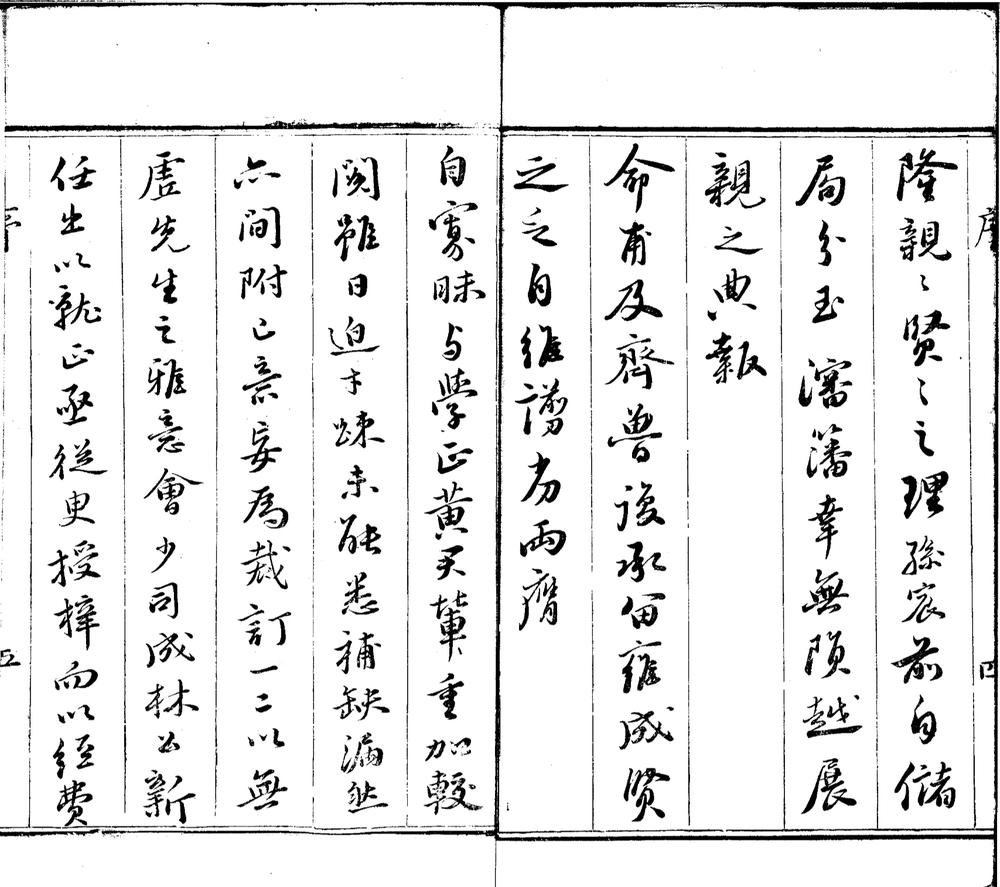 隆親〻賢〻之理孫宸前自儲
局分玉瀋藩幸無隕越展
親之典報
命甫及齊魯後承留雍成賢
之乏自維謭劣兩膺
自寡昧与學正黃天輦重加較
閱雖日迫才疎未能悉補缺漏然
亦間附己意妄為裁訂一二以無
盧先生之雅意會少司成林公新
任出以就正亟從更授梓而以經費